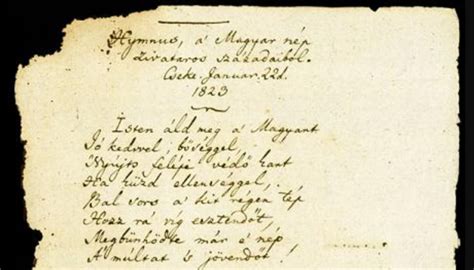 Hymnus, a' Magyar nép
zivataros századaiból.
Cseke Januar. 22d.
1823
Isten áld meg a' Magyart
Jó kedvvel, bőséggel,
Nyújts feléje védő kart
Ha küzd ellenséggel,
Bal sors a' kit régen tép
Hozz rá víg esztendőt,
Megbűnhődte már e' nép
A' multat 's jövendőt!